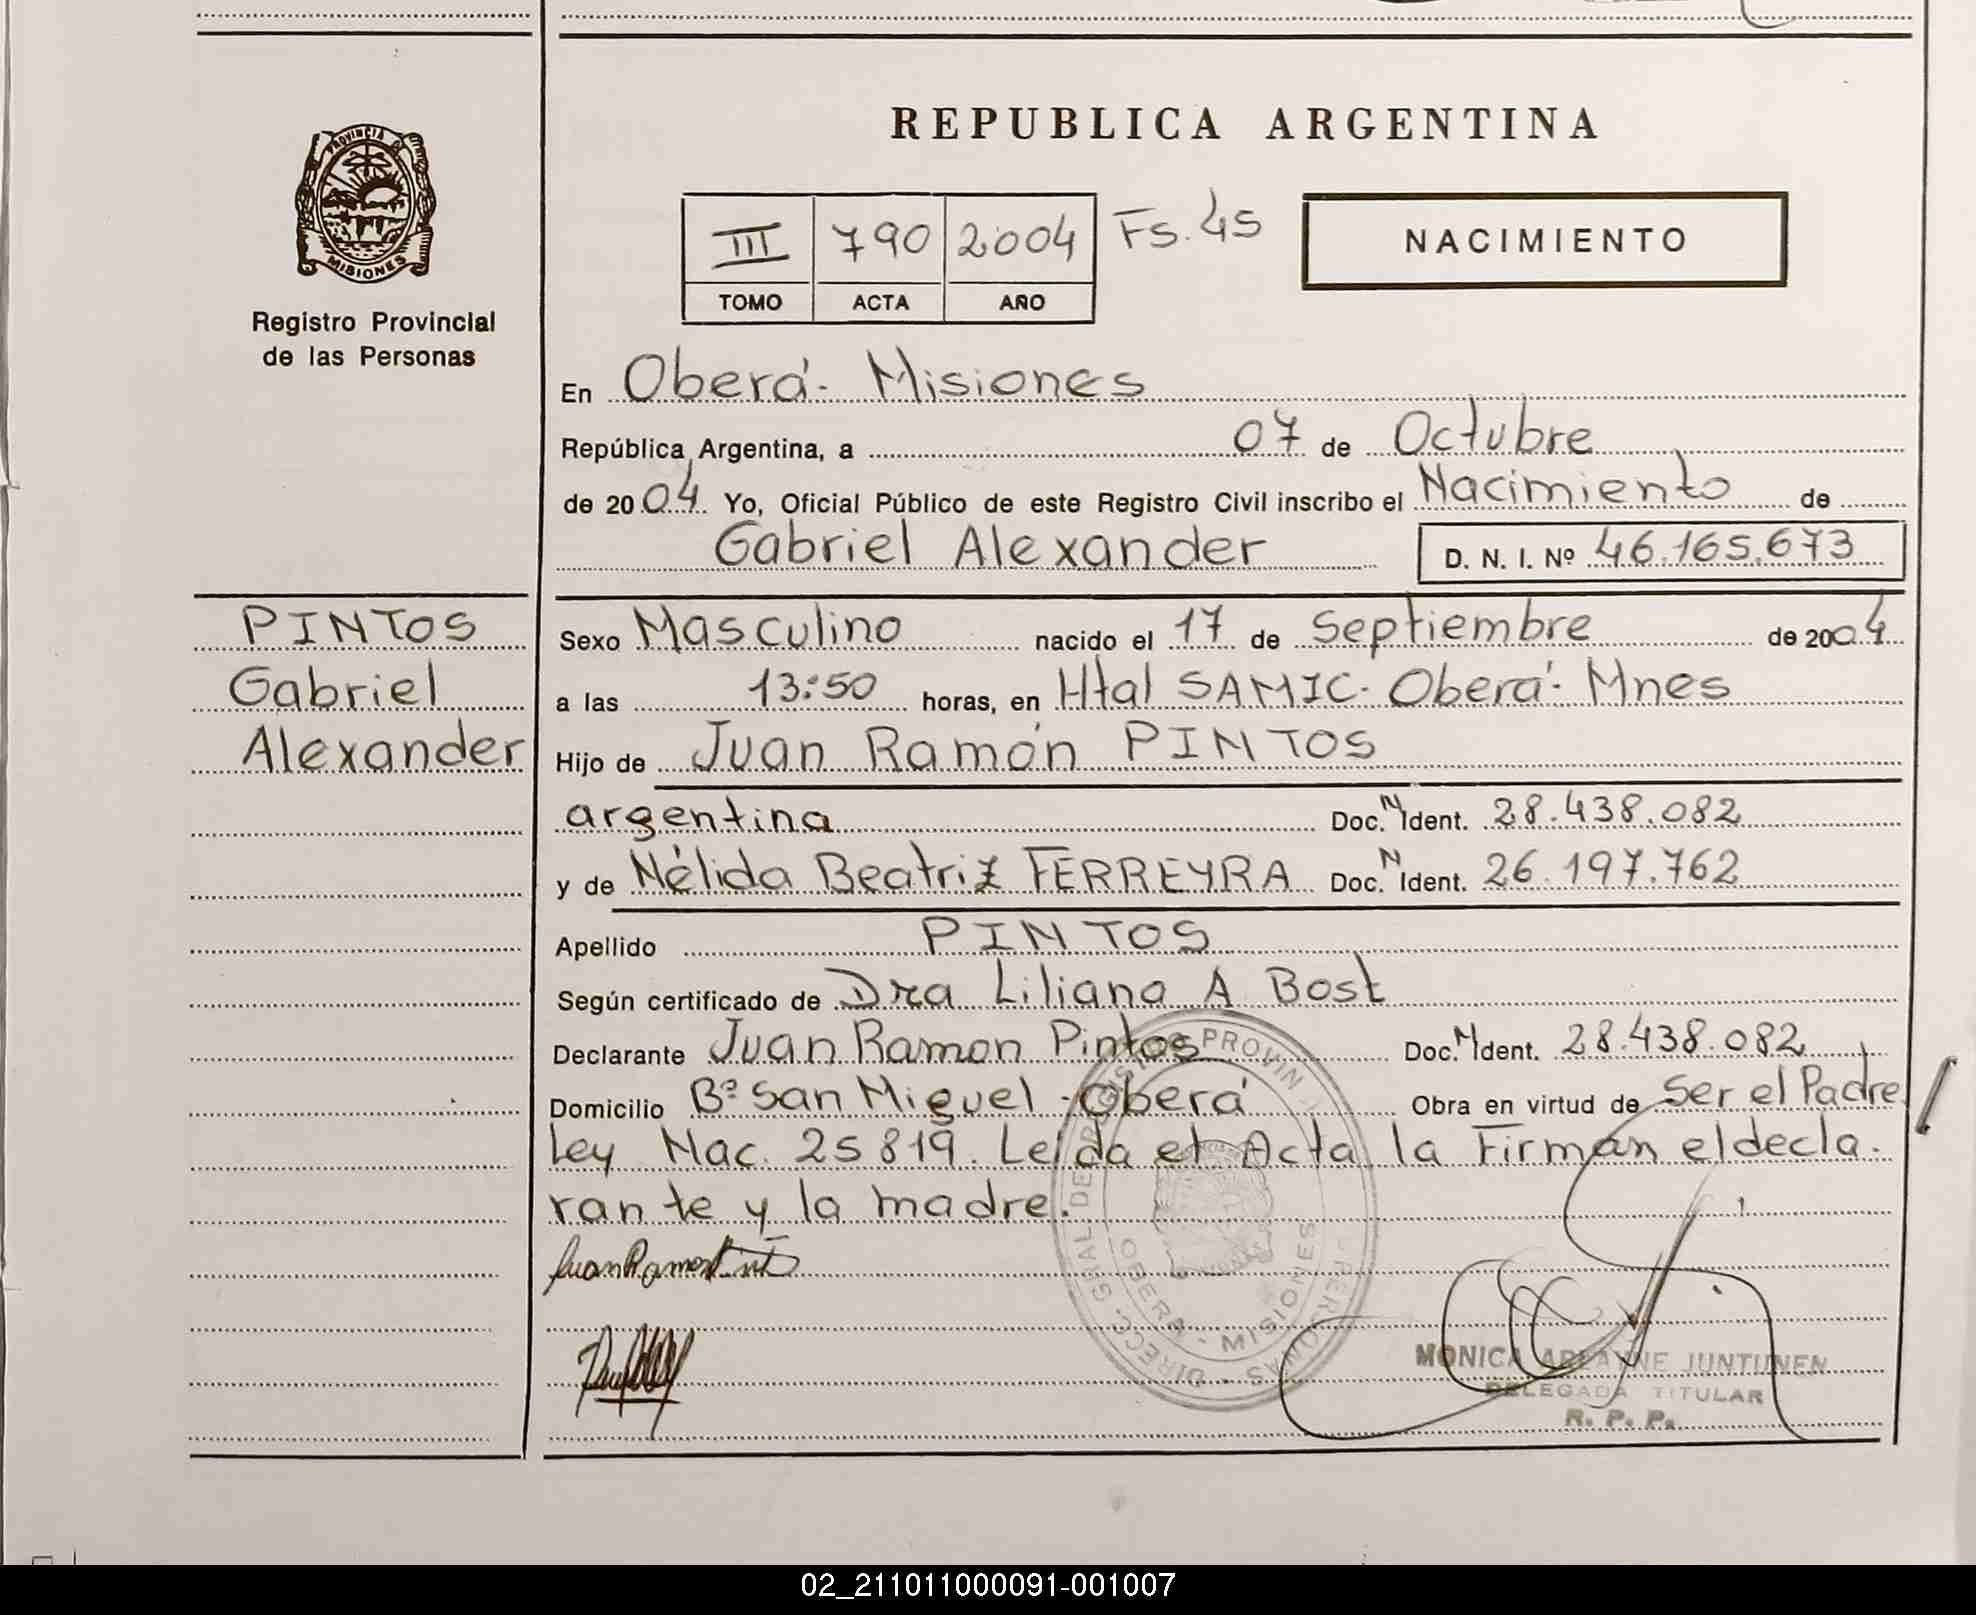 REPUBLICA ARGENTINA
PROVINCIA DE
MISIONES
Registro Provincial
de las Personas
III 790 2004 Fs. 45
TOMO ACTA AÑO
NACIMIENTO
En Oberá - Misiones
República Argentina, a 07 de Octubre
de 2004 Yo, Oficial Público de este Registro Civil inscribo el Nacimiento de
Gabriel Alexander D. N. I. Nº 46.165.673
PINTOS
Gabriel
Alexander
Sexo Masculino nacido el 17 de Septiembre de 2004
a las 13:50 horas, en Htal SAMIC - Oberá - Mnes
Hijo de Juan Ramón PINTOS
argentina Doc. N Ident. 28.438.082
y de Nélida Beatriz FERREYRA Doc. N Ident. 26.197.762
Apellido PINTOS
Según certificado de Dra Liliana A Bost
Declarante Juan Ramon Pintos Doc. N Ident. 28.438.082
Domicilio Bº San Miguel - Oberá Obra en virtud de Ser el Padre
Ley Nac. 25819. Leída el Acta, la Firman el decla-
rante y la madre.
Juan Ramon Pintos
OBERA - MISIONES
MONICA ARLAYNE JUNTUNEN
DELEGADA TITULAR
R. P. P.
02_211011000091-001007